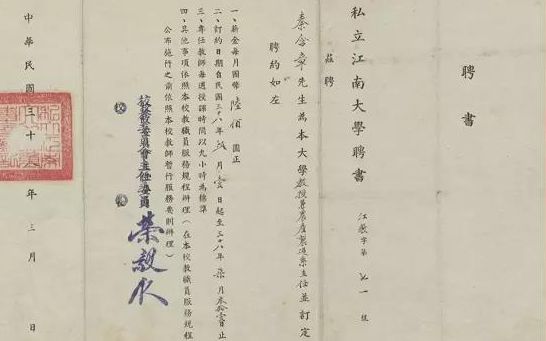 聘書
私立江南大學聘書 江教字第七一號
茲聘
秦含章先生為本大學教授兼農產製造系主任並訂定
聘約如左
一、薪金每月國幣陸佰圓正
二、訂約日期自民國三十八年 月壹日起至三十八年柒月 日止
三、專任教師每週授課時間以九小時為標準
四、其他事項依照本校教職員服務規程辦理（在本校教職員服務規程
公布施行之前依照本校教師暫行服務要則辦理）
校務委員會主任委員 榮毅仁
中華民國三十 年三月 日